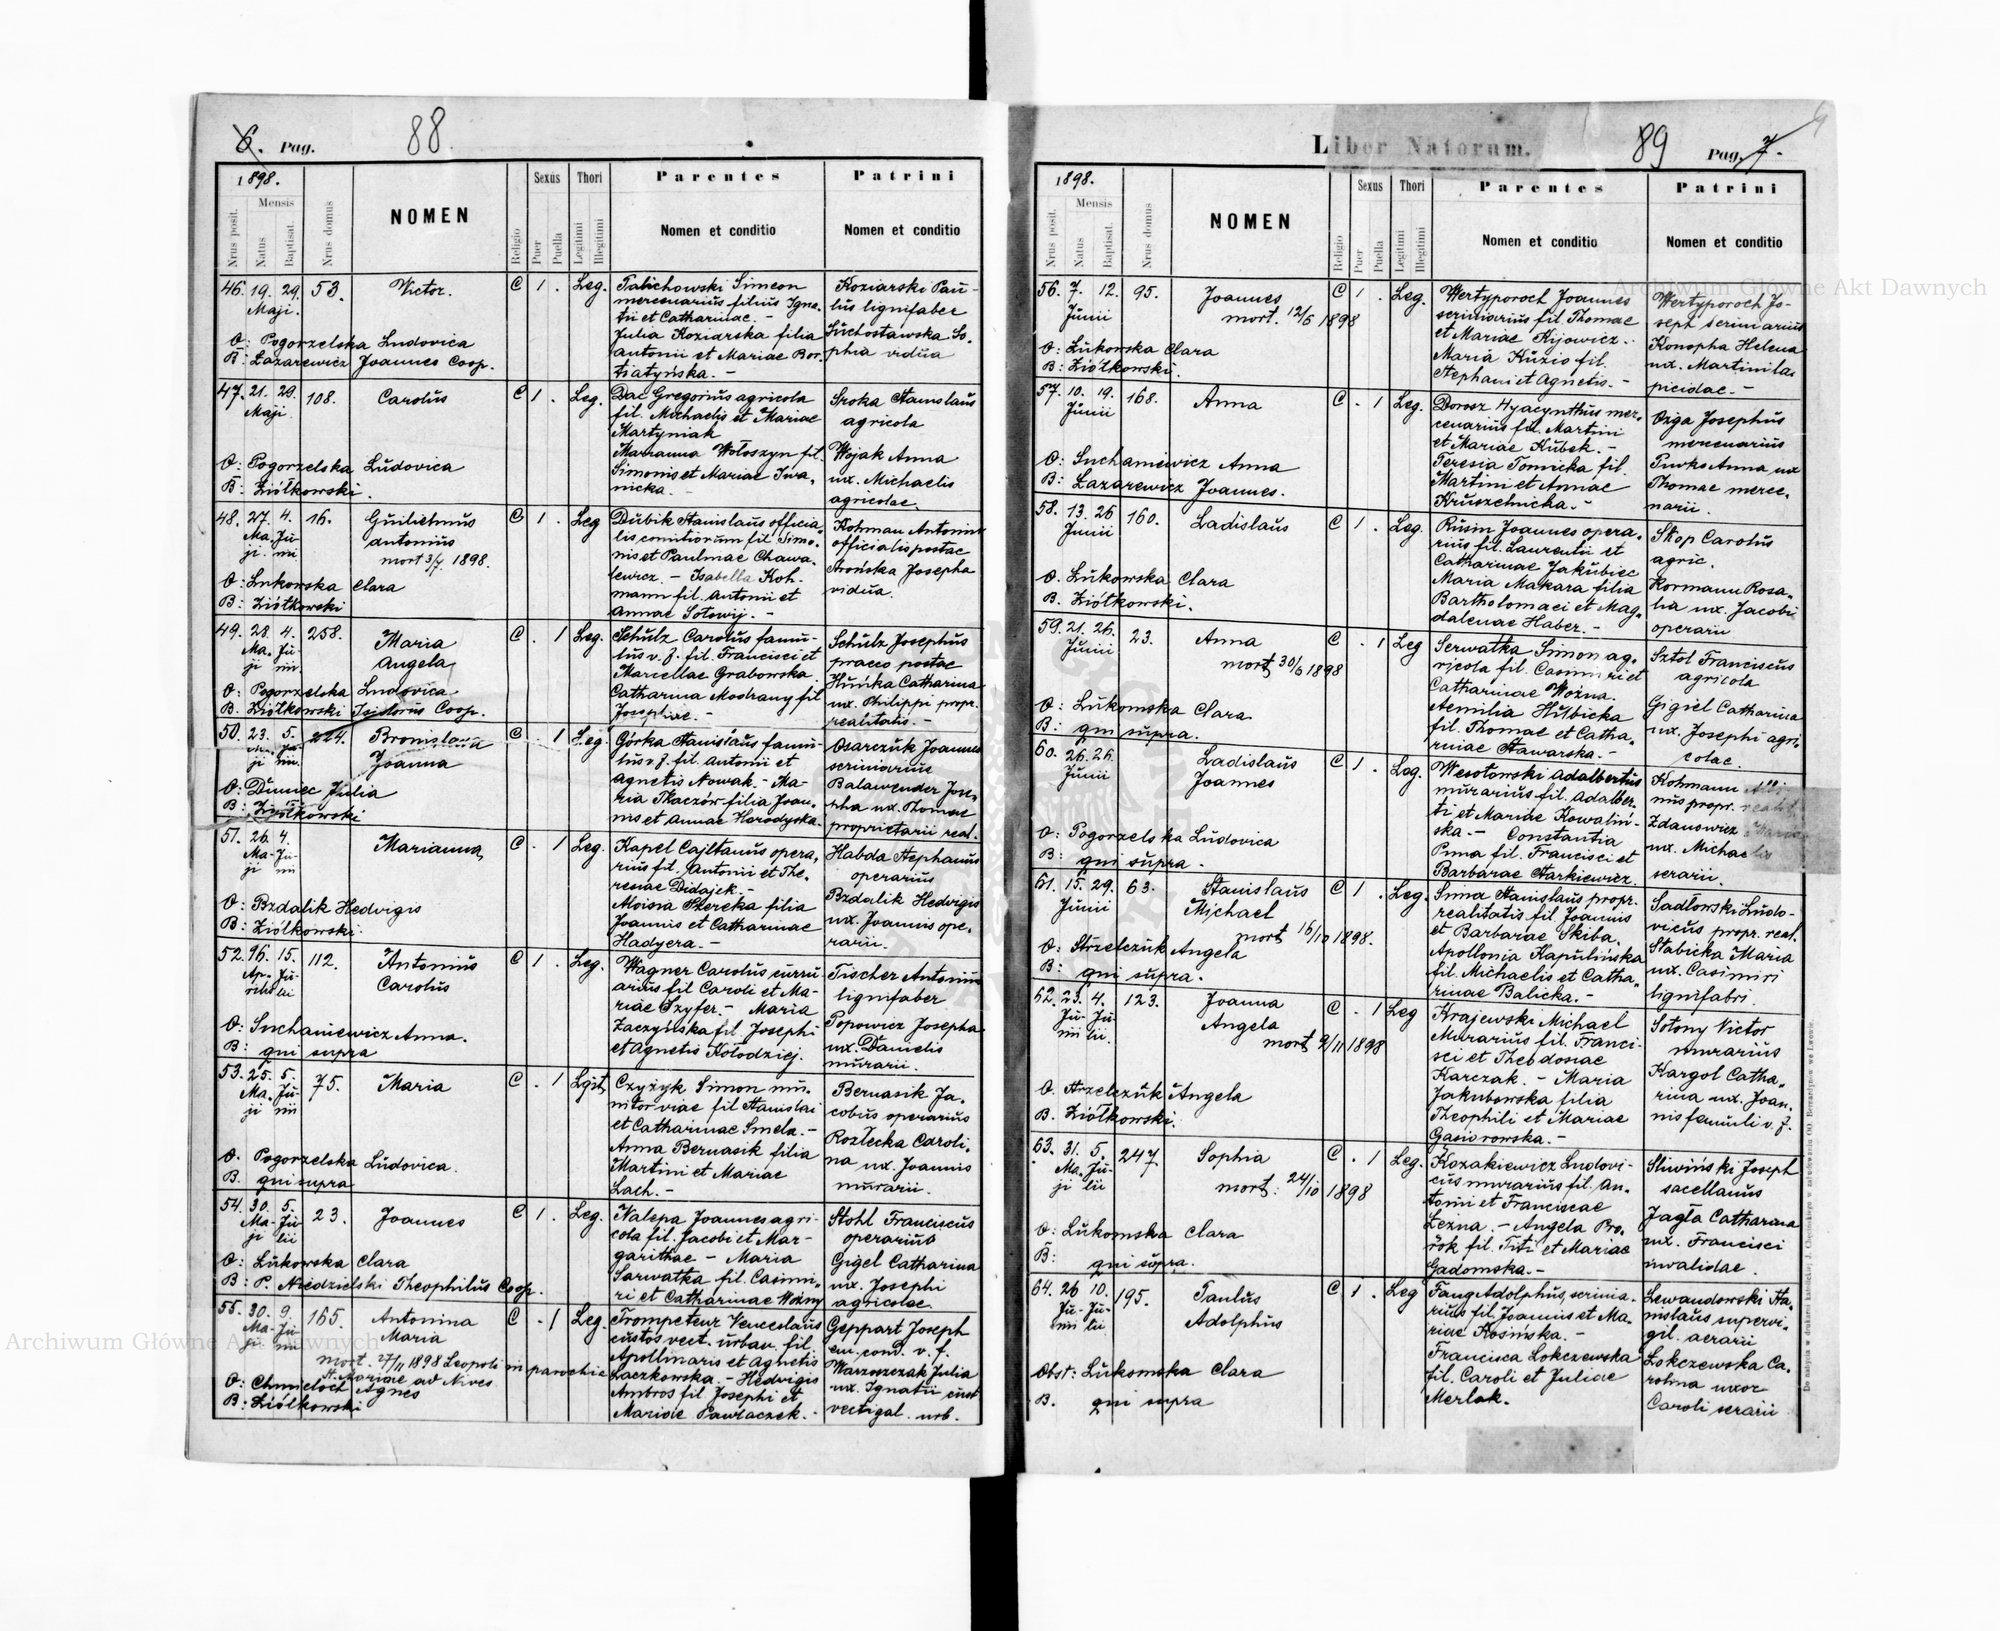 6. Pag.
88
1898.
Nrus posit.
Mensis
Natus
Baptisat.
Nrus domus
NOMEN
Religio
Sexus
Puer
Puella
Thori
Legitimi
Illegitimi
Parentes
Nomen et conditio
Patrini
Nomen et conditio
46. 19. 29. 53. Victor. C 1 . Leg.
Maji.
O: Pogorzelska Ludovica
B: Lazarewicz Joannes Coop.
Simeon
mercenarius filius Igna-
tii et Catharinae. -
Julia Koziarska filia
Antonii et Mariae Bor-
tiatyńska. -
Koziarski Pau-
lus lignifaber
Suchostawska So-
phia vidua
47. 21. 29. 108. Carolus C 1 . Leg.
Maji
O: Pogorzelska Ludovica
B: Ziółkowski.
Dac Gregorius agricola
fil. Michaelis et Mariae
Martyniak
Marianna Wołoszyn fil.
Simonis et Mariae Iwa-
nicka. -
Sroka Stanislaus
agricola
Wojak Anna
ux. Michaelis
agricolae.
48. 27. 4. 16. Guilielmus C 1 . Leg
Ma- Ju-
ji nii
Antonius
mort 3/7. 1898.
O: Lukowska Clara
B: Ziółkowski
Dubik Stanislaus officia-
lis comitiorum fil Simo-
nis et Paulinae Chawa-
lewicz. - Isabella Koh-
mann fil. Antonii et
Annae Sotowij. -
Kohman Antonius
officialis postae
Josepha
vidua.
49. 28. 4. 258. Maria C . 1 Leg.
Ma- Ju-
ji nii
Angela
O: Pogorzelska Ludovica
B: Ziółkowski Isidorus Coop.
Schulz Carolus famu-
lus v. f. fil. Francisci et
Marcellae Grabowska
Catharina Modrany fil
Josephae. -
Schulz Josephus
praeco postae
Huńka Catharina
ux. Philippi propr.
realitatis. -
50. 23. 5. 224. Bronislava C . 1 Leg
Ma- Ju-
ji nii.
Joanna
O: Dumiec Julia
B: Ziółkowski
Górka Stanislaus famu-
lus v f. fil. Antonii et
Agnetis Nowak. - Ma-
ria Tkaczów filia Joan-
nis et Annae Horodyska.
Osarczuk Joannes
scriniarius
Balawender Jose-
pha ux. Thomae
proprietarii real.
51. 26. 4. Marianna C . 1 Leg.
Ma- Ju-
ji nii
O: Bzdalik Hedvigis
B: Ziółkowski.
Kapel Cajetanus opera-
rius fil. Antonii et The-
resiae Didajek. -
Aloisia Szereka filia
Joannis et Catharinae
Hadyera. -
Habda Stephanus
operarius
Bzdalik Hedvigis
ux. Joannis ope-
rarii.
52. 16. 15. 112. Antonius C 1 . Leg.
Ap- Ju-
rilis lii
Carolus
O: Suchaniewicz Anna.
B: qui supra
Wagner Carolus curru-
arius fil Caroli et Ma-
riae Szyfer. - Maria
Zaczyńska fil. Josephi
et Agnetis Kołodziej.
Tischer Antonius
lignifaber
Popowicz Josepha
ux. Danielis
murarii.
53. 25. 5. 75. Maria C . 1 Lgit
Ma- Ju-
ji nii
O. Pogorzelska Ludovica.
B. qui supra
Czyżyk Simon mu-
nitor viae fil Stanislai
et Catharinae Smela. -
Anna Bernasik filia
Martini et Mariae
Lach. -
Bernasik Ja-
cobus operarius
Rozłecka Caroli-
na ux. Joannis
murarii.
54. 30. 5. 23. Joannes C 1 . Leg.
Ma- Ju-
ji lii
O: Lukowska Clara
B: P. Niedzielski Theophilus Coop.
Nalepa Joannes agri-
cola fil. Jacobi et Mar-
garithae - Maria
Sarwatka fil. Casimi-
ri et Catharinae Woźny
Stohl Franciscus
operarius
Gigel Catharina
ux. Josephi
agricolae.
55. 30. 9. 165. Antonina C . 1 Leg.
Ma- Ju-
ji nii
Maria
mort. 27/11 1898 Leopoli in parochia
St. Mariae ad Nives
O: Chmieloch Agnes
B: Ziółkowski
Trompeteur Venceslaus
custos vect. urban. fil.
Apollinaris et Agnetis
Laczkowska. - Hedvigis
Ambros fil Josephi et
Mariae Pawłaczek.
Geppart Joseph
em. cond. v. f.
Julia
ux. Ignatii cust
vectigal. urb.
Liber Natorum.
89
Pag. 7.
1898.
Nrus posit.
Mensis
Natus
Baptisat.
Nrus domus
NOMEN
Religio
Sexus
Puer
Puella
Thori
Legitimi
Illegitimi
Parentes
Nomen et conditio
Patrini
Nomen et conditio
56. 7. 12. 95. Joannes C 1 . Leg.
Junii
mort. 12/6 1898
O: Lukowska Clara
B: Ziółkowski.
Wertyporoch Joannes
scriniarius fil. Thomae
et Mariae Kijowicz. -
Maria Kuzio fil.
Stephani et Agnetis. -
Wertyporoch Jo-
seph scriniarius
Konopha Helena
ux. Martini la-
picidae. -
57. 10. 19. 168. Anna C . 1 Leg.
Junii
O: Suchaniewicz Anna
B: Lazarewicz Joannes.
Dorosz Hyacynthus mer-
cenarius fil. Martini
et Mariae Kubek. -
Teresia Tomicka fil.
Martini et Annae
Kruszelnicka. -
Ożga Josephus
mercenarius
Anna ux
Thomae merce-
narii.
58. 13. 26 160. Ladislaus C 1 . Leg.
Junii
O. Lukowska Clara
B. Ziółkowski.
Rusin Joannes opera-
rius fil. Laurentii et
Catharinae Jakubiec
Maria Makara filia
Bartholomaei et Mag-
dalenae Haber. -
Skop Carolus
agric.
Kormann Rosa-
lia ux. Jacobi
operarii
59. 21. 26. 23. Anna C . 1 Leg
Junii
mort 30/6 1898
O: Lukomska Clara
B: qui supra.
Serwatka Simon ag-
ricola fil. Casimiri et
Catharinae Woźna.
Aemilia Hulbicka
fil. Thomae et Catha-
rinae Stawarska. -
Sztol Franciscus
agricola
Gigiel Catharina
ux. Josephi agri-
colae.
60. 26. 26. Ladislaus C 1 . Leg.
Junii
Joannes
O: Pogorzelska Ludovica
B: qui supra.
Wesołowski Adalbertus
murarius fil. Adalber-
ti et Mariae Kowaliń-
ska. - Constantia
Puma fil. Francisci et
Barbarae Starkiewicz.
Kohmann
nus propr. realit.
Zdanowicz Maria
ux. Michaelis
serarii.
61. 15. 29. 63. Stanislaus C 1 . Leg.
Junii
Michael
mort 16/10 1898.
O: Strzelczuk Angela
B: qui supra.
Stanislaus propr.
realitatis fil Joannis
et Barbarae Skiba.
Apollonia Kapulińska
fil. Michaelis et Catha-
rinae Balicka. -
Sadłowski Ludo-
vicus propr. real.
Stabicka Maria
ux. Casimiri
lignifabri.
62. 23. 4. 123. Joanna C . 1 Leg
Ju- Ju-
nii lii.
Angela
mort 9/11 1898
O. Strzelczuk Angela
B. Ziółkowski.
Krajewski Michael
Murarius fil. Franci-
sci et Theodosiae
Karczak. - Maria
Jakubowska filia
Theophili et Mariae
Gąsiorowska. -
Sotony Victor
murarius
Kargol Catha-
rina ux. Joan-
nis famuli v. f.
63. 31. 5. 247. Sophia C . 1 Leg.
Ma- Ju-
ji lii
mort: 24/10 1898
O: Lukomska Clara
B: qui supra.
Kozakiewicz Ludovi-
cus murarius fil. An-
tonii et Franciscae
Leżna. - Angela Pro-
rok fil. Titi et Mariae
Gadomska. -
Śliwiński Joseph
sacellanus
Jagła Catharina
ux. Francisci
invalidae.
64. 26 10. 195. Paulus C 1 . Leg
Ju- Ju-
nii lii
Adolphus
Obst: Lukomska Clara
B. qui supra
Fang Adolphus, scrinia-
rius fil. Joannis et Ma-
riae Kosińska. -
Francisca Lokczewska
fil. Caroli et Juliae
Merlak.
Lewandowski Sta-
nislaus supervi-
gil. aerarii
Lokczewska Ca-
rolina uxor
Caroli serarii
De nabycia w drukarni katolickiej J. Chęcińskiego w zabudowaniu OO. Bernardynów we Lwowie.
Archiwum Główne Akt Dawnych
Archiwum Główne Akt Dawnych